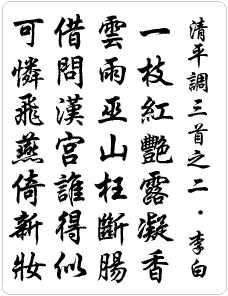 清平調三首之二·李白
一枝紅艷露凝香
雲雨巫山枉斷腸
借問漢宮誰得似
可憐飛燕倚新妝